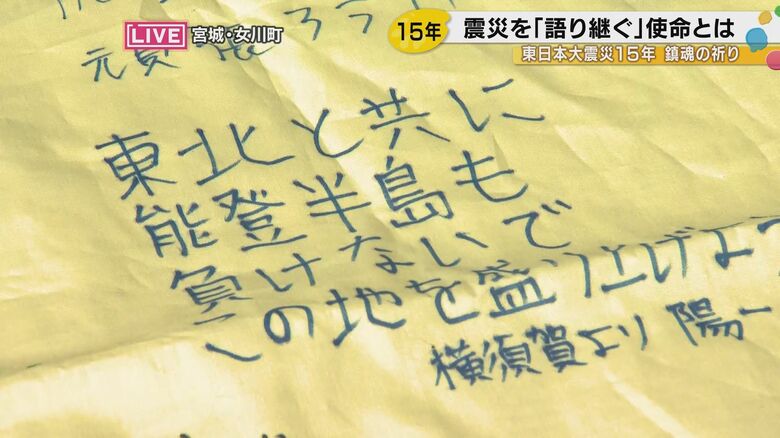 LIVE 宮城・女川町
15年 震災を「語り継ぐ」使命とは
東日本大震災15年 鎮魂の祈り
東北と共に
能登半島も
負けないで
この地を盛り上げよう
横須賀より 陽一